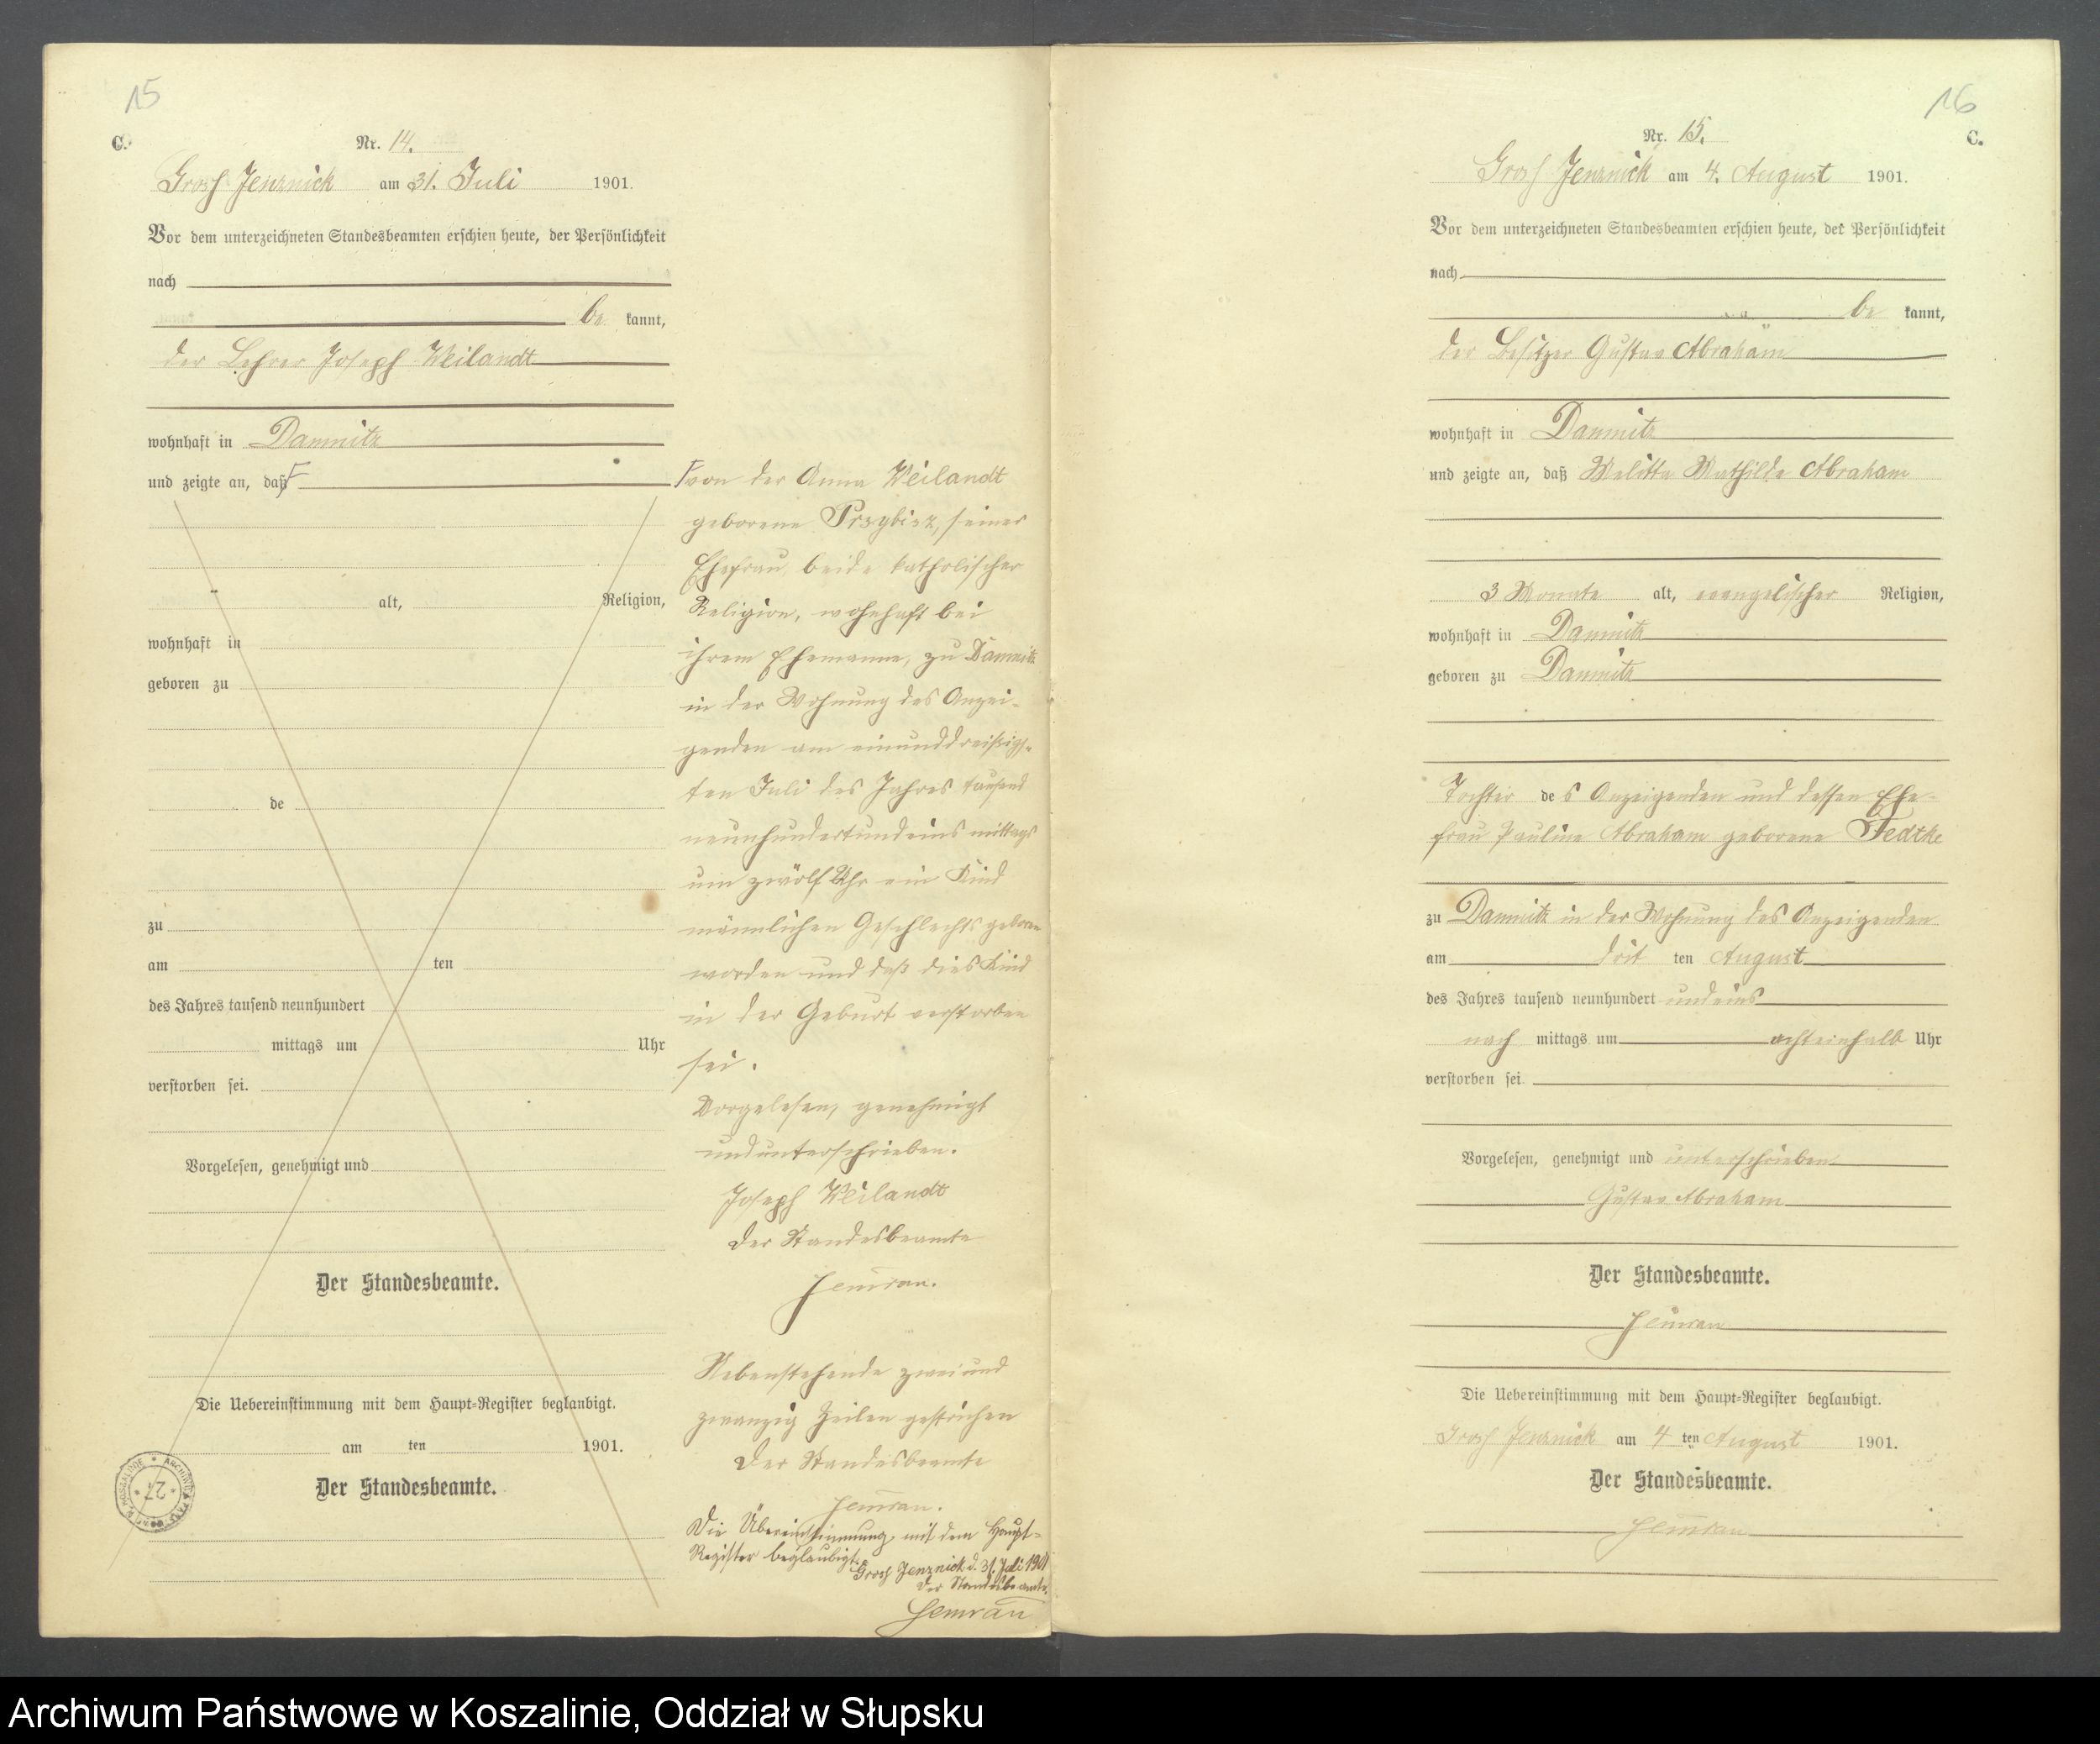 15
C.
Nr. 14.
Groß Jenznick am 31. Juli 1901.
Vor dem unterzeichneten Standesbeamten erschien heute, der Persönlichkeit
nach
be kannt,
der Lehrer Joseph Weilandt
wohnhaft in Damnitz
und zeigte an, daß
alt, Religion,
wohnhaft in
geboren zu
de
zu
am ten
des Jahres tausend neunhundert
mittags um Uhr
verstorben sei.
Vorgelesen, genehmigt und
Der Standesbeamte.
Die Uebereinstimmung mit dem Haupt-Register beglaubigt.
am ten 1901.
Der Standesbeamte.
27
von der Anna Weilandt
geborene Przybisz, seiner
Ehefrau, beide katholischer
Religion, wohnhaft bei
ihrem Ehemanne, zu Damnitz
in der Wohnung des Anzei-
genden am einunddreißigs-
ten Juli des Jahres tausend
neunhundertundeins mittags
um zwölf Uhr ein Kind
männlichen Geschlechts geboren
worden und daß dies Kind
in der Geburt verstorben
sei.
Vorgelesen, genehmigt
und unterschrieben.
Joseph Weilandt
Der Standesbeamte
Nebenstehende zweiund
zwanzig Zeilen gestrichen
Der Standesbeamte
Die Übereinstimmung mit dem Haupt-
Register beglaubigt.
Groß Jenznick d. 31. Juli 1901
Der Standesbeamte.
16
C.
Nr. 15.
Groß Jenznick am 4. August 1901.
Vor dem unterzeichneten Standesbeamten erschien heute, der Persönlichkeit
nach
be kannt,
der Besitzer Gustav Abraham
wohnhaft in Damnitz
und zeigte an, daß Melitta Mathilde Abraham
3 Monate alt, evangelischer Religion,
wohnhaft in Damnitz
geboren zu Damnitz
Tochter des Anzeigenden und dessen Ehe-
frau Pauline Abraham geborene Fedtke
zu Damnitz in der Wohnung des Anzeigenden
am ten August
des Jahres tausend neunhundert undeins
nach mittags um achteinhalb Uhr
verstorben sei.
Vorgelesen, genehmigt und unterschrieben
Gustav Abraham
Der Standesbeamte.
Die Uebereinstimmung mit dem Haupt-Register beglaubigt.
Groß Jenznick am 4 ten August 1901.
Der Standesbeamte.
Archiwum Państwowe w Koszalinie, Oddział w Słupsku